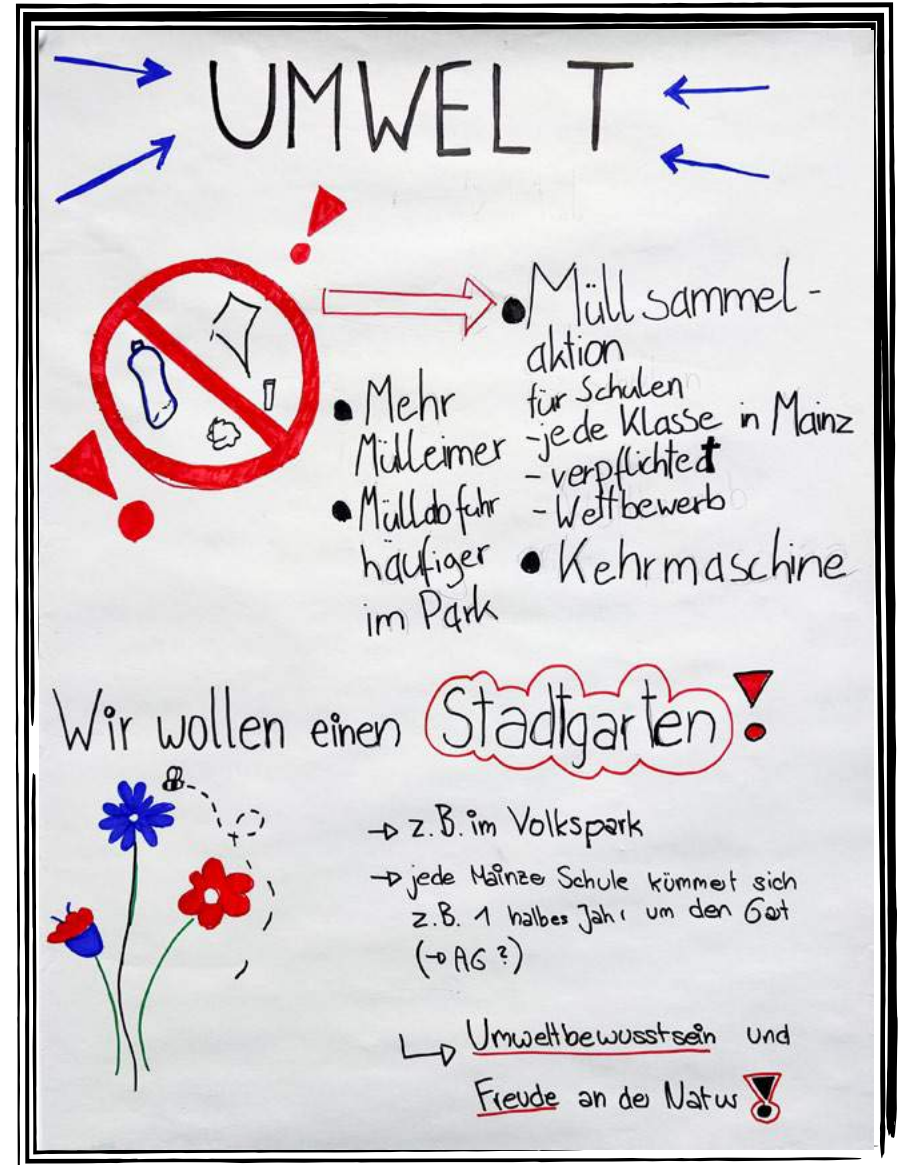 UMWELT
• Mehr
Mülleimer
• Müllabfuhr
häufiger
im Park
• Müllsammel-
aktion
für Schulen
- jede Klasse in Mainz
- verpflichtet
- Wettbewerb
• Kehrmaschine
Wir wollen einen Stadtgarten!
→ z.B. im Volkspark
→ jede Mainzer Schule kümmert sich
z.B. 1 halbes Jahr um den Gart
(→ AG ?)
↳ Umweltbewusstsein und
Freude an der Natur!